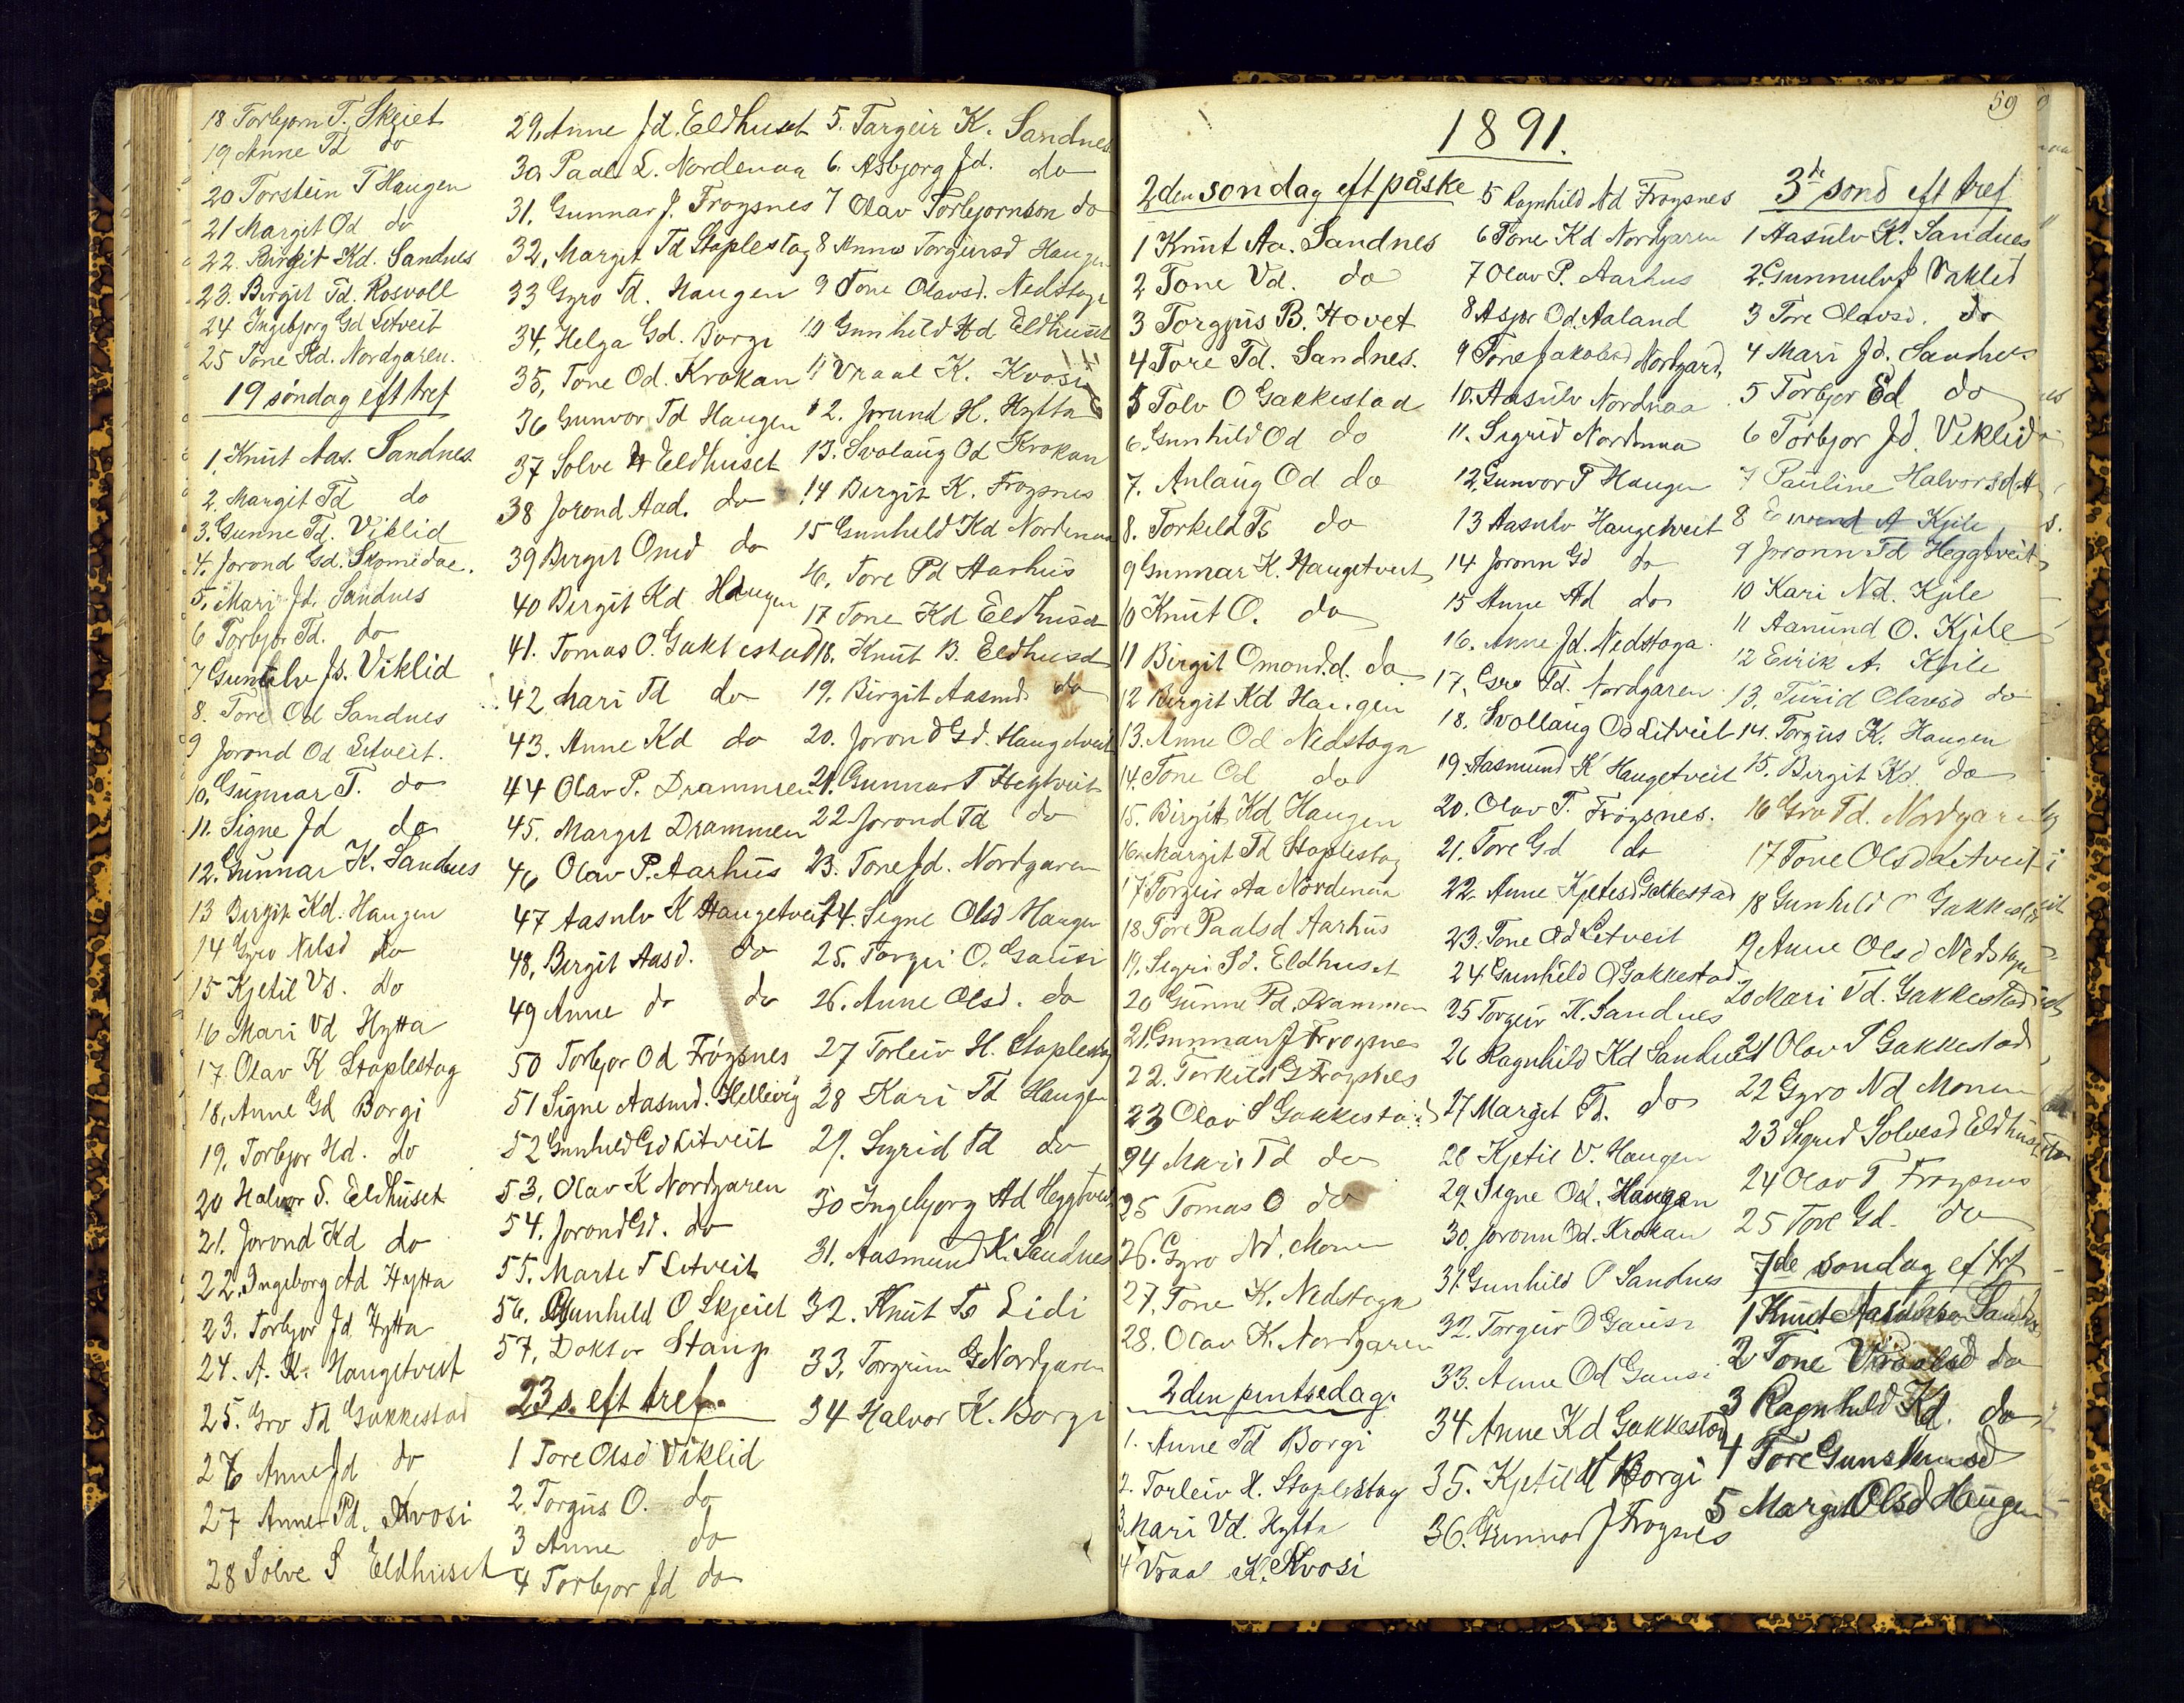 18 Torbjørn T. Skeiet
19 Anne Td do
20 Torstein T Haugen
21 Margit Od do
22. Birgit Kd. Sandnes
23. Birgit Td. Rosvoll
24 Ingebjørg Gd Litveit
25 Tone Kd. Nordgaren.
19 søndag eft tref
1, Knut Aas. Sandnes
2. Margit Td do
3. Gunne Td. Viklid
4. Jorond Gd. Skomedae.
5, Mari Jd. Sandnes
6 Torbjor Td. do
7 Gunulv Js. Viklid
8. Tore Od Sandnes
9 Jorond Od Litveit.
10. Gunnar T. do
11. Signe Jd do
12. Gunnar K. Sandnes
13 Birgit Kd. Haugen
14 Gyro Nilsd do
15 Kjetil Vs. do
16 Mari Vd Hytta
17. Olav K Staplestog
18, Anne Gd Borgi
19, Torbjor Hd. do
20 Halvor S. Eldhuset
21. Jorond Kd do
22. Ingeborg Ad Hytta
23. Torbjor Jd Hytta
24. A. K. Haugetveit
25. Gro Td Gakkestad
26 Anne Jd do
27 Anne Pd. Kvosi
28 Solve S Eldhuset
29, Anne Jd. Eldhuset
30, Paal L. Nordenaa
31. Gunnar J. Froysnes
32, Margit Td Staplestog
33 Gyro Td. Haugen
34, Helga Gd. Borgi
35, Tone Od. Krokan
36 Gunvor Td Haugen
37 Solve Eldhuset
38 Jorond Aad. do
39 Birgit Omd do
40 Birgit Kd Haugen
41. Tomas O. Gakkestad
42 Mari Td do
43. Anne Kd do
44 Olav P. Drammen
45. Margit Drammen
46 Olav P. Aarhus
47 Aasulv K Haugetveit
48, Birgit Aasd. do
49 Anne do do
50 Torbjor Od Frøysnes
51 Signe Aasmd. Helleviig
52 Gunhild Gd Litveit
53, Olav K Nordgaren
54. Jorond Gd. do
55. Marte T Litveit
56. Gunhild O Skjeiet
57, Doktor Stang
23 s. eft tref.
1 Tore Olsd Viklid
2, Torgus O. do
3 Anne do
4 Torbjor Jd do
5. Targeir K. Sandnes
6. Asbjorg Jd. do
7 Olav Torbjornson do
8 Anne Torgeirsd Haugen
9 Tone Olavsd. Nedstoga
10 Gunhild Hd Eldhuset
11 Vraal K. Kvosi
12. Jorund H. Hytta
13. Svolaug Od Krokan
14 Birgit K. Froysnes
15 Gunhild Kd Nordenaa
16. Tore Pd Aarhus
17 Tone Kd Eldhuset
18. Knut B. Eldhusd
19. Birgit Aasmd. do
20. Jorond Gd. Haugetveit
21. Gunnar T Heggtveit
22 Jorond Td do
23. Tone Jd. Nordgaren
24. Signe Olsd Haugen
25. Torgei O. Gausi
26. Anne Olsd. do
27 Torleiv H. Staplestog
28 Kari Td Haugen
29. Sigrid Td do
30 Ingebjorg Ad Heggtveit
31. Aasmund K. Sandnes
32. Knut Ts Lidi
33, Torgrim G Nordgaren
34 Halvor K. Borgi
59
1891.
2den søndag eft påske
1 Knut Aa. Sandnes
2 Tone Vd. do
3 Torgjus B. Hovet
4 Tore Td. Sandnes.
5 Talv O Gakkestad
6. Gunhild Od do
7. Anlaug Od do
8. Torkild Ts do
9 Gunnar K. Haugetveit
10 Knut O. do
11 Birgit Omond.d. do
12 Birgit Kd Haugen
13. Anne Od Nedstoga
14. Tone Od do
15. Birgit Kd Haugen
16 Margit Td Staplestog
17 Torgeir Aa Nordenaa
18 Tore Paalsd Aarhus
19, Segri Sd. Eldhuset
20 Gunne Pd. Drammen
21. Gunnar J Froysnes
22. Torkild G Froysnes
23 Olav S Gakkestad
24 Mari Td do
25 Tomas O do
26. Gyro Nd. Monen
27, Tone K. Nedstoga
28. Olav K. Nordgaren
2den pintsedag.
1. Anne Td Borgi
2. Torleiv H. Staplestog
3. Mari Vd. Hytta
4 Vraal K. Kvosi
5 Ragnhild Nd Froysnes
6 Tone Kd Nordgaren
7 Olav P. Aarhus
8 Asjor Od. Aaland
9 Tone Jakobsd Nordgard,
10. Aasulv Nordnaa
11. Sigrid Nordnaa
12, Gunvor T Haugen
13 Aasulv Haugetveit
14 Joronn Gd do
15 Anne Ad do
16. Anne Jd. Nedstoga
17, Gro Td. Nordgaren
18. Svollaug Od Litveit
19. Aasmund K Haugetveit
20. Olav T. Froysnes.
21. Tore Gd do
22. Anne Kjetilsd Gakkestad
23. Tone Od Litveit
24 Gunhild O Gakkestad
25 Torgeir K. Sandnes
26 Ragnhild Kd Sandnes
27 Margit Td. do
28 Kjetil V. Haugen
29. Signe Od. Haugen
30. Joronn Od. Krokan
31. Gunhild P Sandnes
32. Torgeir O Gausi
33. Anne Od Gausi
34 Anne Kd Gakkestad
35. Kjetil T Borgi
36. Gunnar J Froysnes
3de sond eft tref
1 Aasulv K. Sandnes
2. Gunnulv J Viklid
3 Tore Olavsd. do
4 Mari Jd. Sandnes
5 Torbjor Ed do
6 Torbjor Jd. Viklid
7 Pauline Halvorsd.
8 Eivind A Kjile
9 Joronn Td Heggtveit
10 Kari Nd. Kjile
11 Aanund O. Kjile
12 Eirik A. Kjile
13, Turid Olavsd do
14. Torgus K. Haugen
15. Birgit Kd. do
16 Gro Td. Nordgaren
17 Tone Olsd Litveit
18 Gunhild O Gakkestad
19 Anne Olsd Nedstoga
20 Mari Td. Gakkestad
21 Olav S Gakkestad
22 Gyro Nd Monen
23 Sigrid Solvesd Eldhuset
24 Olav T Froysnes
25 Tore Gd. do
7de søndag ef trf
1 Knut Aasulvson Sandnes
2 Tone Vraalsd do
3 Ragnhild Kd. do
4 Tore Gunsteinsd
5 Margit Olsd Haugen